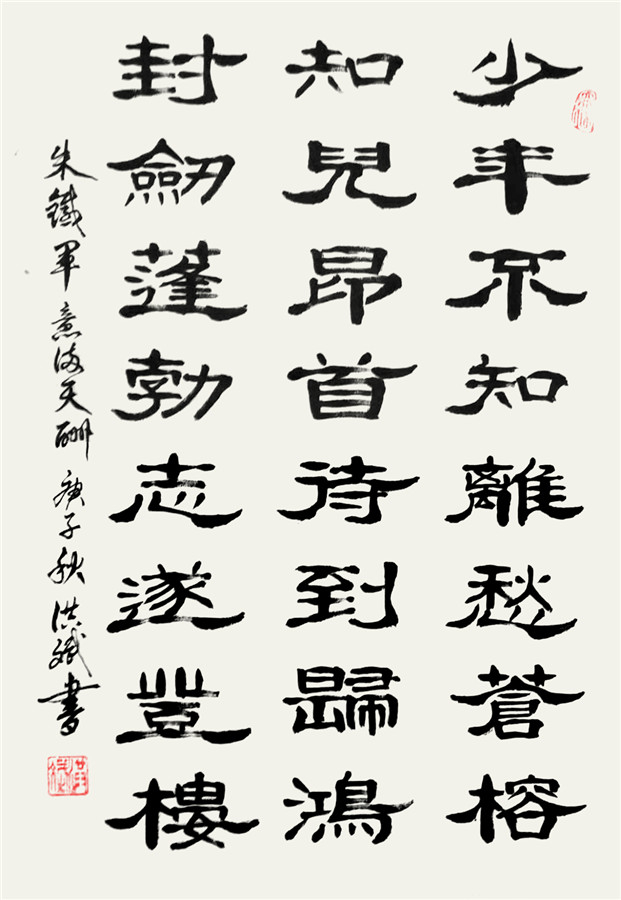 少年不知離愁蒼榕
知兒昂首待到歸鴻
封劔蓬勃志遂豐樓
朱鐵軍意海天酬庚子秋洪斌書